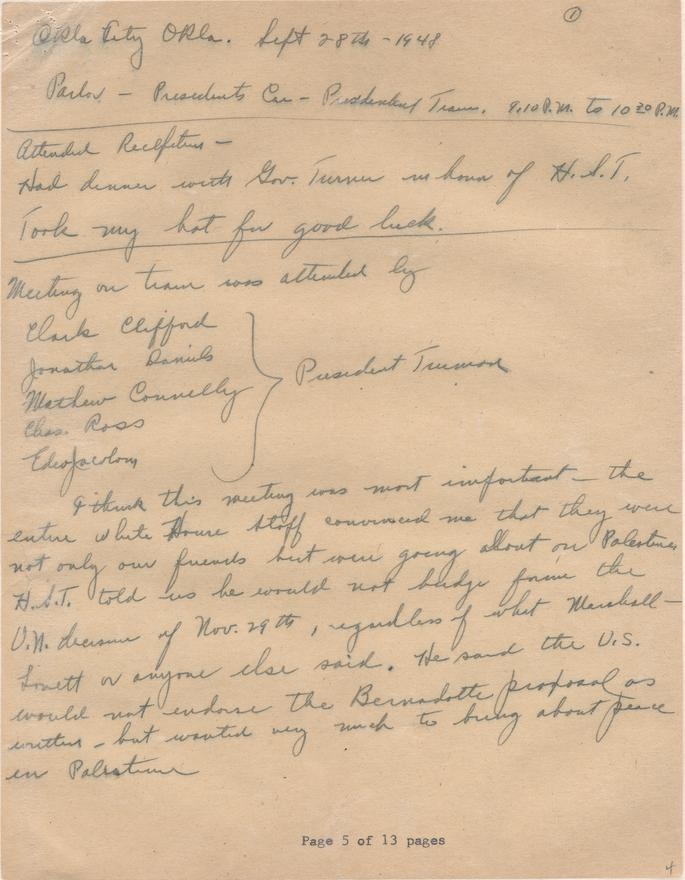 ①
Okla City Okla. Sept 28th - 1948
Parlor - Presidents Car - Presidential Train. 9.10 P.M. to 10 30 P.M.
Attended Reception -
Had dinner with Gov. Turner in honor of H.S.T.
Took my hat for good luck.
Meeting on train was attended by
Clark Clifford
Jonathan Daniels
Mathew Connelly
President Truman
Chas. Ross
Ed Jacobson
I think this meeting was most important - the
entire White House Staff convinced me that they were
not only our friends but were going about on Palestine
H.S.T. told us he would not budge from the
U.N. decision of Nov. 29th, regardless of what Marshall-
Lovett or anyone else said. He said the U.S.
would not endorse the Bernadotte proposal as
written - but wanted very much to bring about peace
in Palestine
Page 5 of 13 pages
4